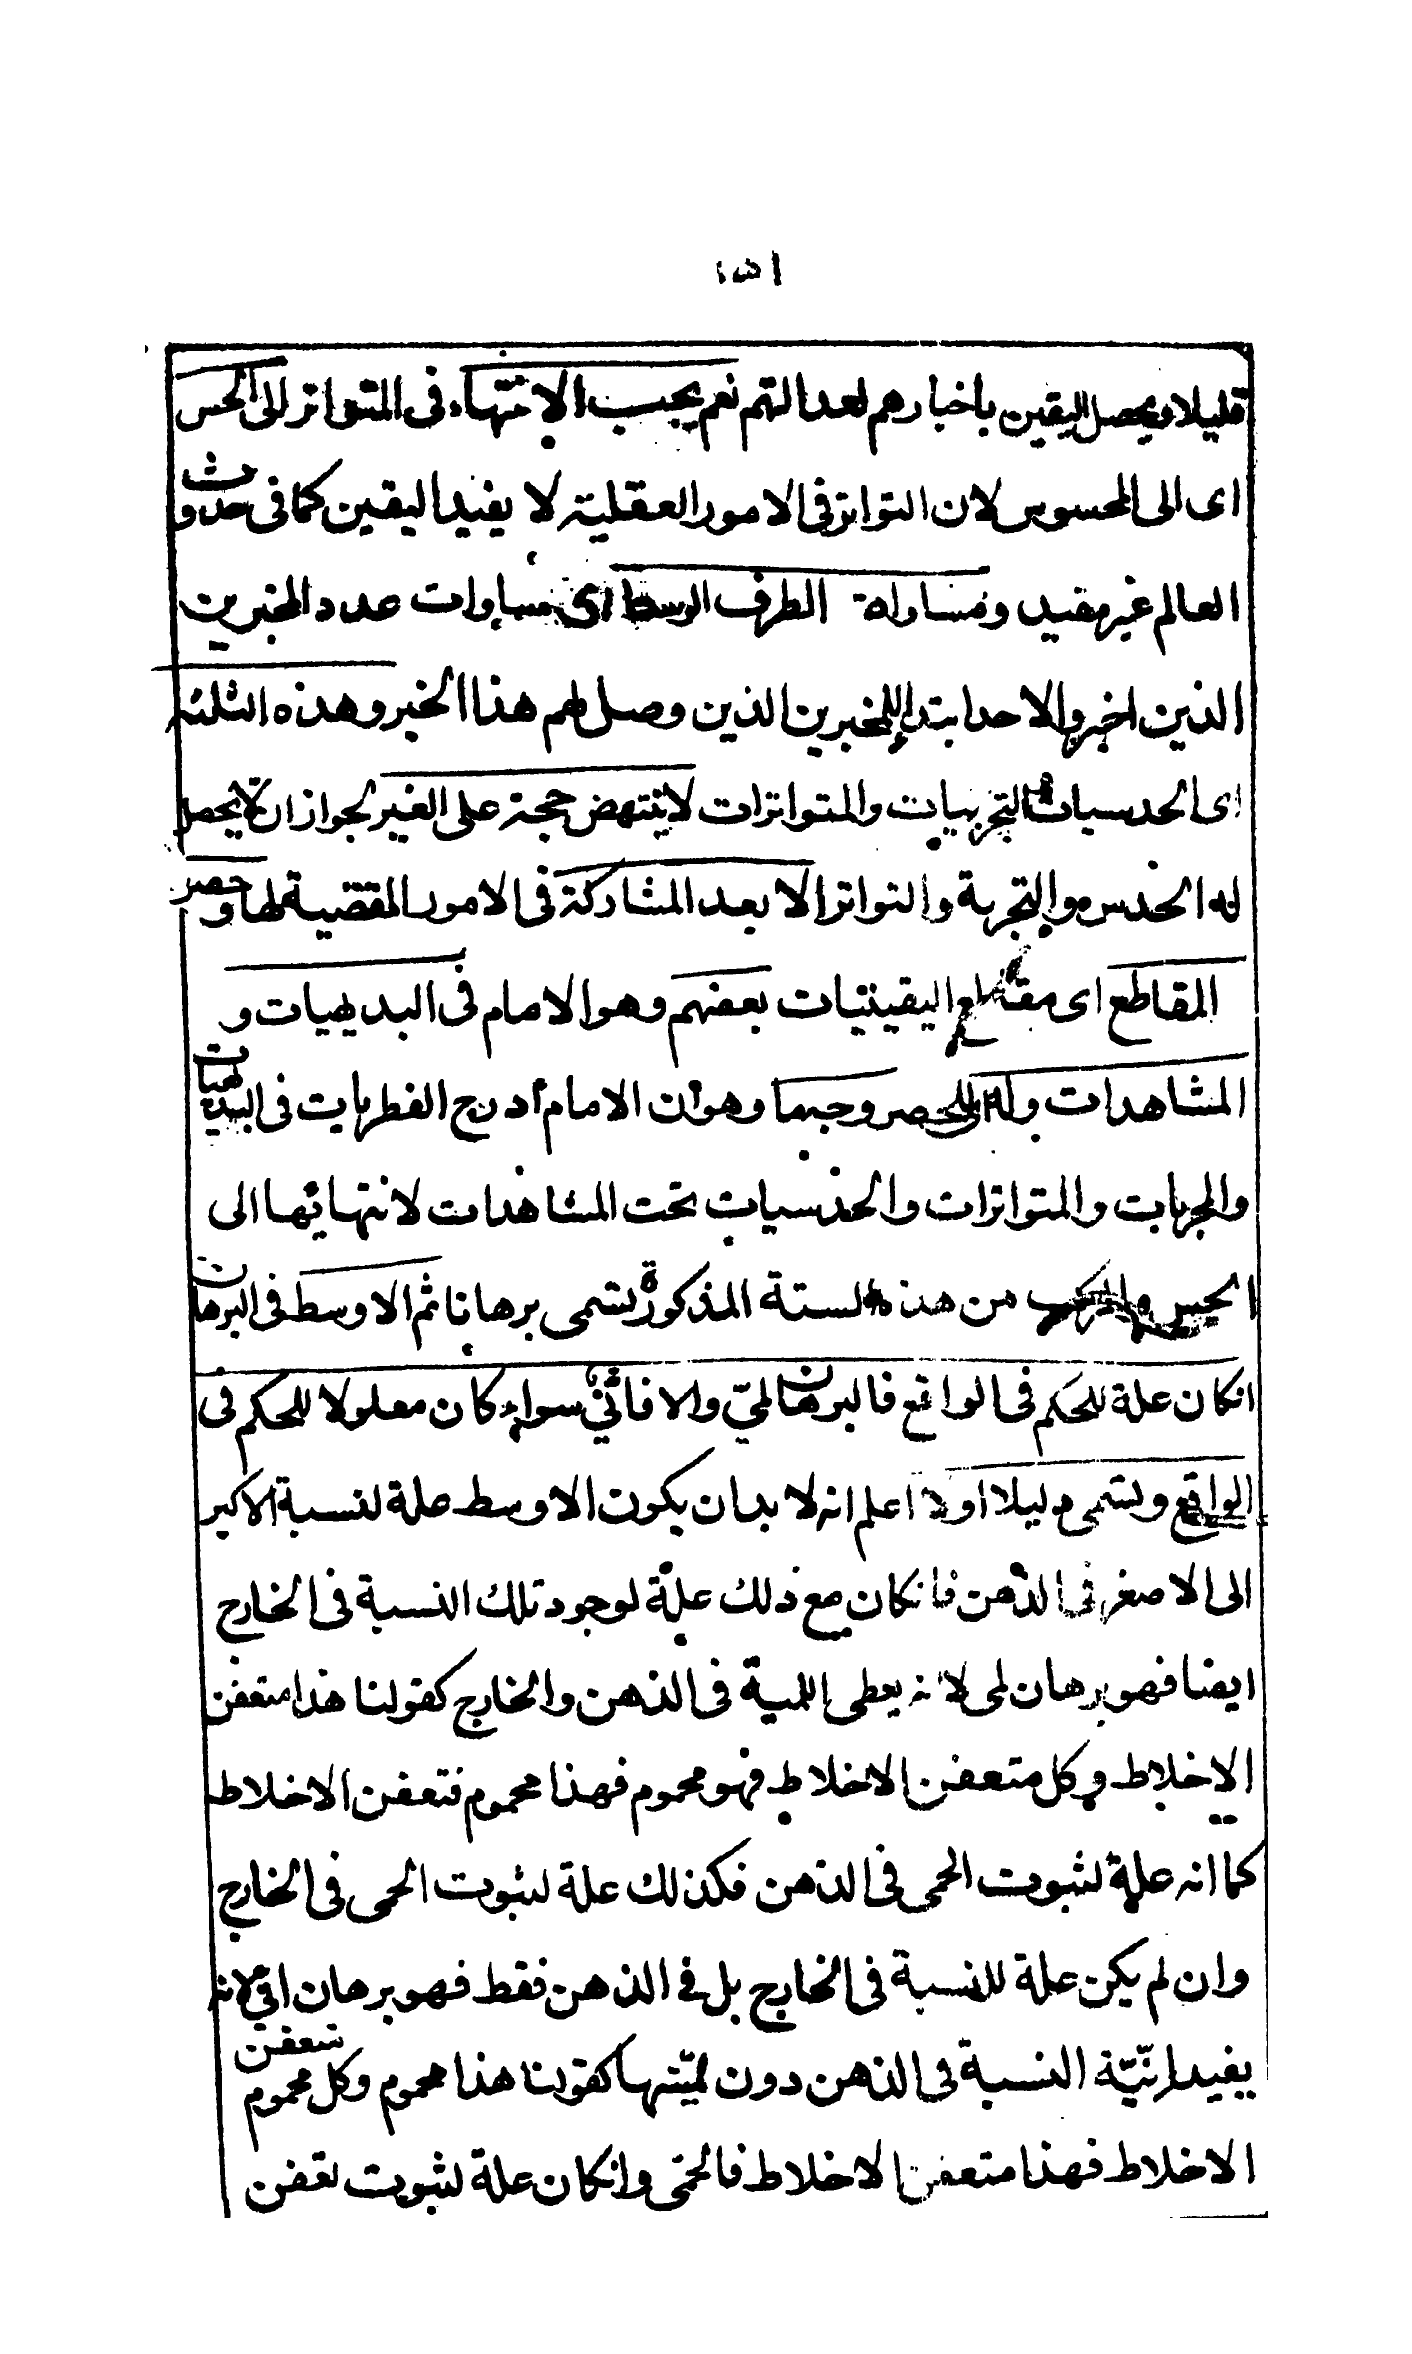 ١٥١
قليلا ويحصل اليقين باخبارهم لعدالتهم نعم يجب الانتهاء فى المتواتر الى الحس
اى الى المحسوس لان التواتر فى الامور العقلية لا يفيد اليقين كما فى حدوث
العالم غير مفيد ومساواة الطرف الوسط اى مساوات عدد المخبرين
الذين اخبروا لاحد ابتداء للمخبرين الذين وصل لهم هذا الخبر وهذه الثلثه
اى الحدسيات والتجربيات والمتواترات لا ينتهض حجة على الغير لجواز ان لا يحصل
له الحدس والتجربة والتواتر الا بعد المشاركة فى الامور المقتضية لها وحصر
المقاطع اى مقاطع اليقينيات بعضهم وهو الامام فى البديهيات و
المشاهدات وله للحصر وجه ما وهو ان الامام ادرج الفطريات فى البديهيات
والمجربات والمتواترات والحدسيات تحت المشاهدات لانتهائها الى
الحس والمركب من هذه الستة المذكورة تسمى برهانا ثم الاوسط فى البرهان
انكان علة للحكم فى الواقع فالبرهان لمى والا فانى سواء كان معلولا للحكم فى
الواقع ويسمى دليلا اولا اعلم انه لا بد ان يكون الاوسط علة لنسبة الاكبر
الى الاصغر فى الذهن فانكان مع ذلك علة لوجود تلك النسبة فى الخارج
ايضا فهو برهان لمى لانه يعطى اللمية فى الذهن والخارج كقولنا هذا متعفن
الاخلاط وكل متعفن الاخلاط فهو محموم فهذا محموم فتعفن الاخلاط
كما انه علة لثبوت الحمى فى الذهن فكذلك علة لثبوت الحمى فى الخارج
وان لم يكن علة للنسبة فى الخارج بل فى الذهن فقط فهو برهان انى لانه
يفيد إنّيّة النسبة فى الذهن دون لميّتها كقولنا هذا محموم وكل محموم متعفن
الاخلاط فهذا متعفن الاخلاط فالحمّى وانكان علة لثبوت تعفن